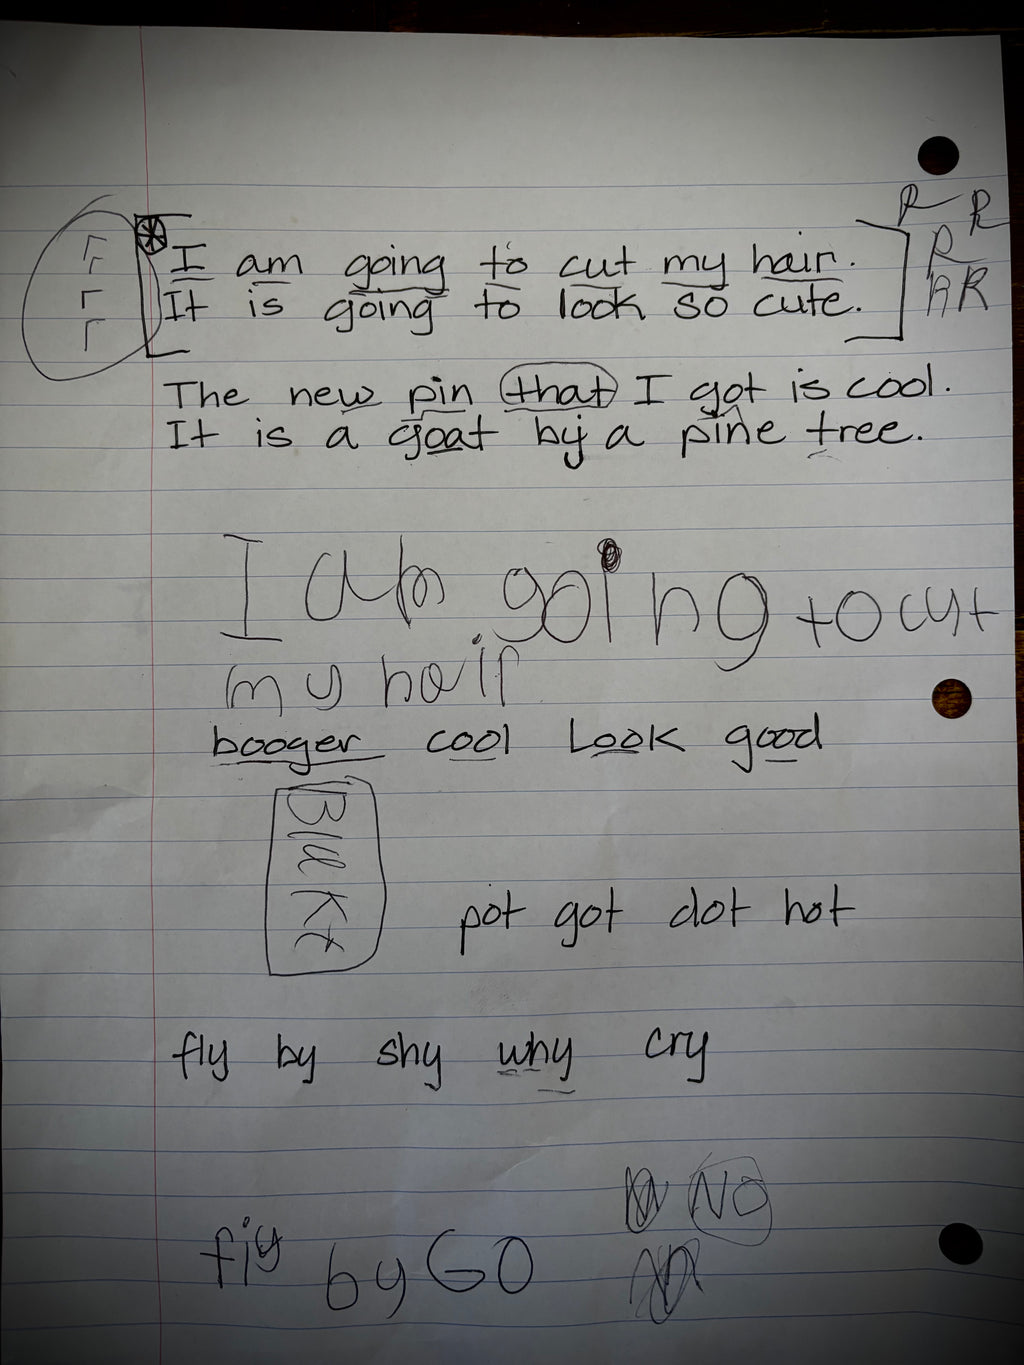 R R
R
R R
r
r
r
r
I am going to cut my hair.
It is going to look so cute.
The new pin that I got is cool.
It is a goat by a pine tree.
I am going to cut
my hair
booger cool Look good
pot got dot hot
fly by shy why cry
No
fiy by GO